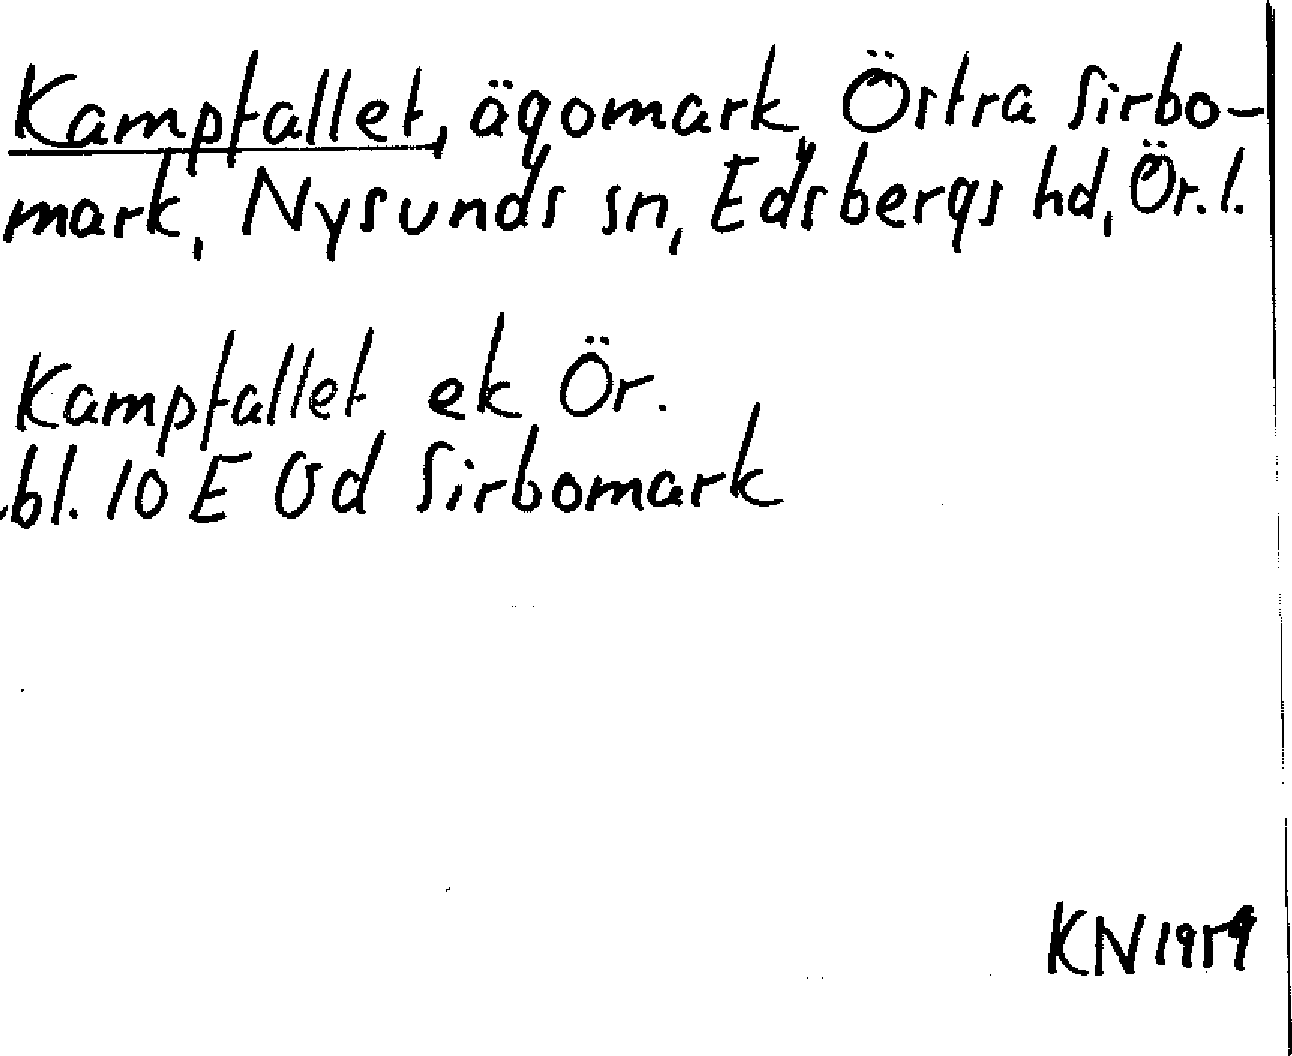 Kampfallet, ägomark, Östra Sirbo-
mark, Nysunds sn, Edsbergs hd, Ör. l.
Kampfallet ek Ör.
bl. 10 E Od Sirbomark
KN 1959